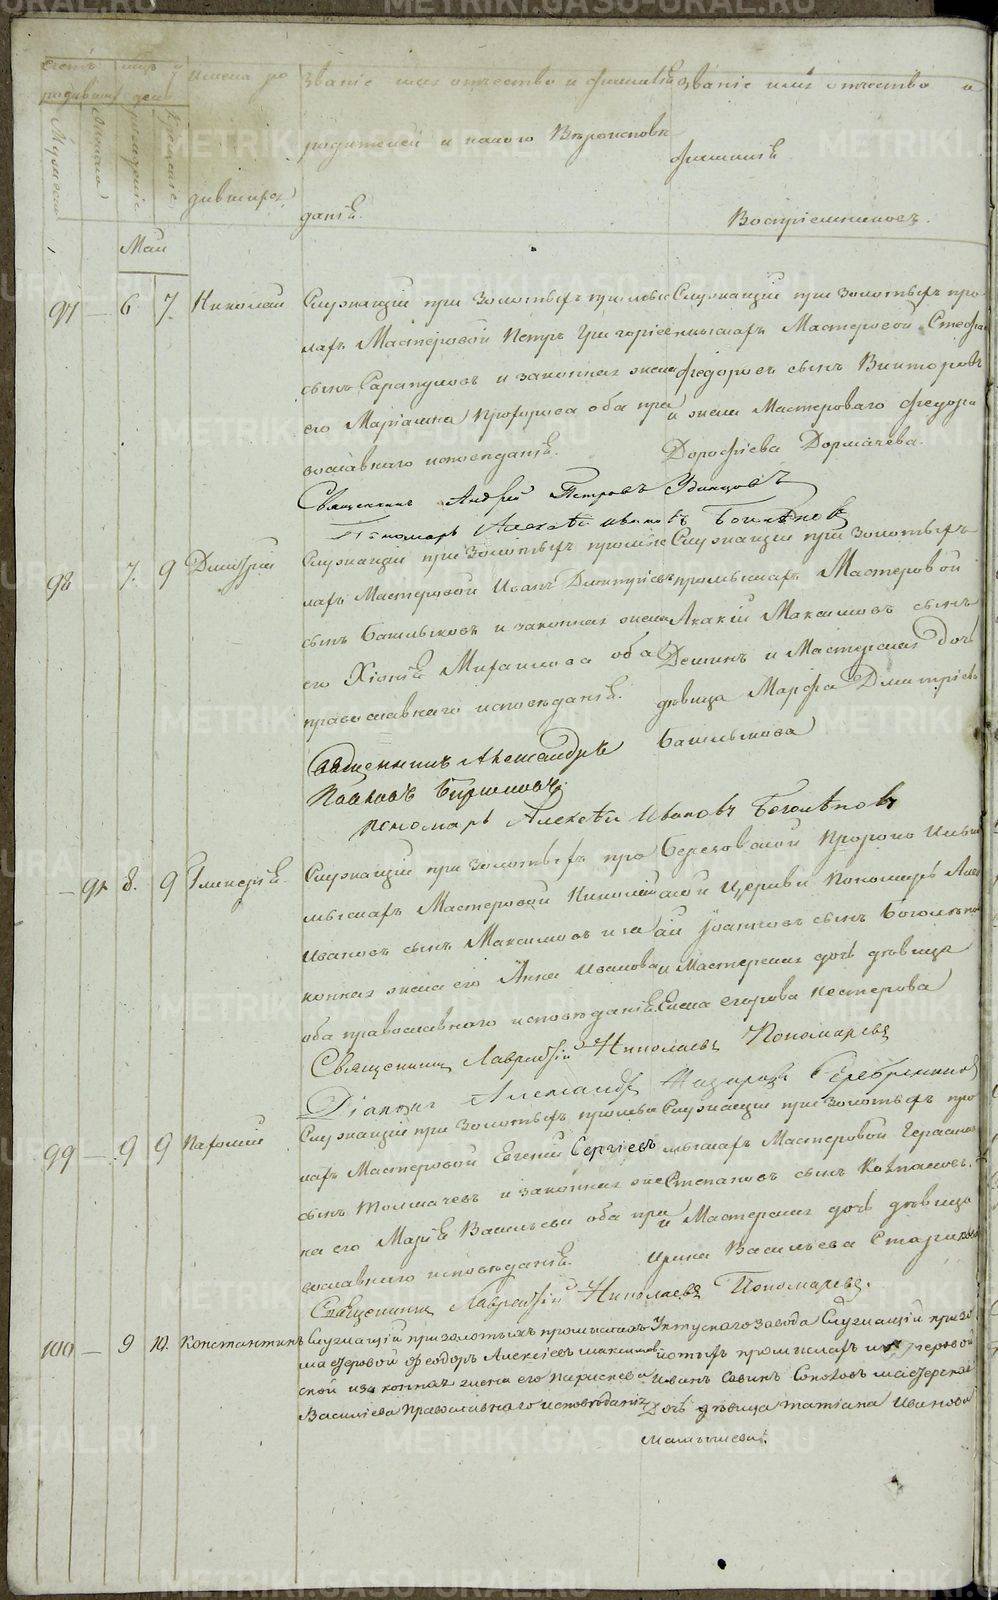 Счетъ родившихся
Мѣсяцъ и день
Имена родившихся
Званіе имя отчество и фамилія родителей и какого Вѣроисповѣданія.
Званіе имя отчество и фамилія Воспріемниковъ.
Мужеска
Женска
рожденіе
крещеніе
Маія
97 — 6 7. Николай
Служащій при Золотыхъ промыс
лахъ Мастеровой Петръ Григоріевъ
сынъ Сарапуловъ и законная жена
его Маріамна Профирова оба пра
вославнаго исповѣданія.
Служащій при Золотыхъ про
мыслахъ Мастеровой Стефанъ
Федоровъ сынъ Викторовъ
и жена Мастероваго Федора
Дорофѣева Дормачева.
Священникъ Андрей Петровъ Удинцовъ
Пономарь Алексѣй Ивановъ Боголѣповъ
98 — 7. 9 Димитрій
Служащій при Золотыхъ промыс
лахъ Мастеровой Иванъ Димитріевъ
сынъ Башлыковъ и законная жена
его Хіонія Михайлова оба
православнаго исповѣданія.
Служащій при Золотыхъ
промыслахъ Мастеровой
Акакій Максимовъ сынъ
Деминъ и Мастерская дочь
дѣвица Марфа Димитріева
Башлыкова
Священникъ Александръ
Павловъ Бирюковъ
пономарь Алексѣй Ивановъ Боголѣповъ
— 91 8. 9 Гликерія
Служащій при Золотыхъ про
мыслахъ Мастеровой Николай
Ивановъ сынъ Максимовъ и за
конная жена его Анна Иванова
оба православнаго исповѣданія
Березовской Пророко Ильин
ской Церкви Пономарь Алексѣ
ай Іоанновъ сынъ Боголѣповъ
и Мастерская дочь дѣвица
Елена Егорова Нестерова
Священникъ Лаврентій Николаевъ Пономаревъ
Діаконъ Александръ Назаровъ Серебрениковъ
99 — 9 9 Пахомій
Служащій при Золотыхъ промыс
лахъ Мастеровой Евгеній Сергіевъ
сынъ Толмачевъ и законная же
на его Марія Васильева оба пра
вославнаго исповѣданія.
Служащій при Золотыхъ про
мыслахъ Мастеровой Герасимъ
Степановъ сынъ Колпаковъ.
и Мастерская дочь дѣвица
Ирина Васильева Старикова
Священникъ Лаврентій Николаевъ Пономаревъ.
100 — 9 10. Константинъ
Служащій при золотыхъ промыслахъ
мастеровой Феодоръ Алексіевъ Максимов
ской и законная жена его Параскева
Василіева Православнаго исповѣданія
Уктускаго завода Служащій при зо
лотыхъ промыслахъ мастеровой
Иванъ Савинъ Соколовъ мастерская
Дочь дѣвица Татіана Иванова
Малышева.
METRIKI.GASO-URAL.RU